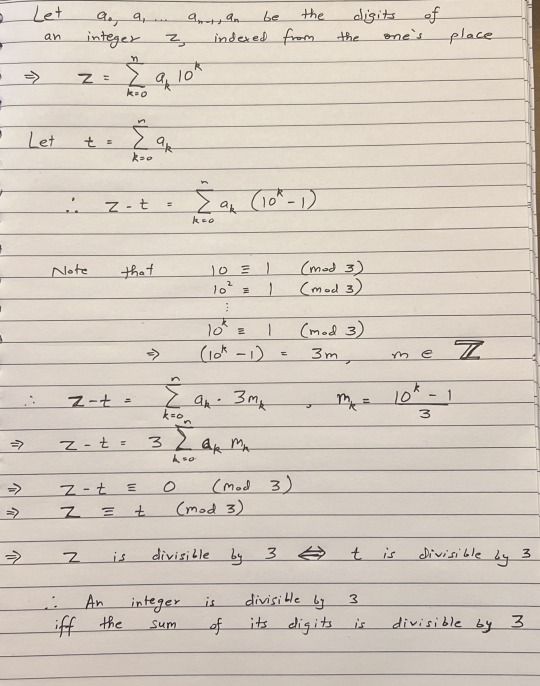 Let a₀, a₁ ... aₙ₋₁, aₙ be the digits of
an integer z, indexed from the one's place
⇒ z = ∑_{k=0}^{n} aₖ 10ᵏ
Let t = ∑_{k=0}^{n} aₖ
∴ z - t = ∑_{k=0}^{n} aₖ (10ᵏ - 1)
Note that 10 ≡ 1 (mod 3)
10² ≡ 1 (mod 3)
⋮
10ᵏ ≡ 1 (mod 3)
⇒ (10ᵏ - 1) = 3m, m ∈ ℤ
∴ z - t = ∑_{k=0}^{n} aₖ · 3mₖ , mₖ = (10ᵏ - 1)/3
⇒ z - t = 3 ∑_{k=0}^{n} aₖ mₖ
⇒ z - t ≡ 0 (mod 3)
⇒ z ≡ t (mod 3)
⇒ z is divisible by 3 ⇔ t is divisible by 3
∴ An integer is divisible by 3
iff the sum of its digits is divisible by 3